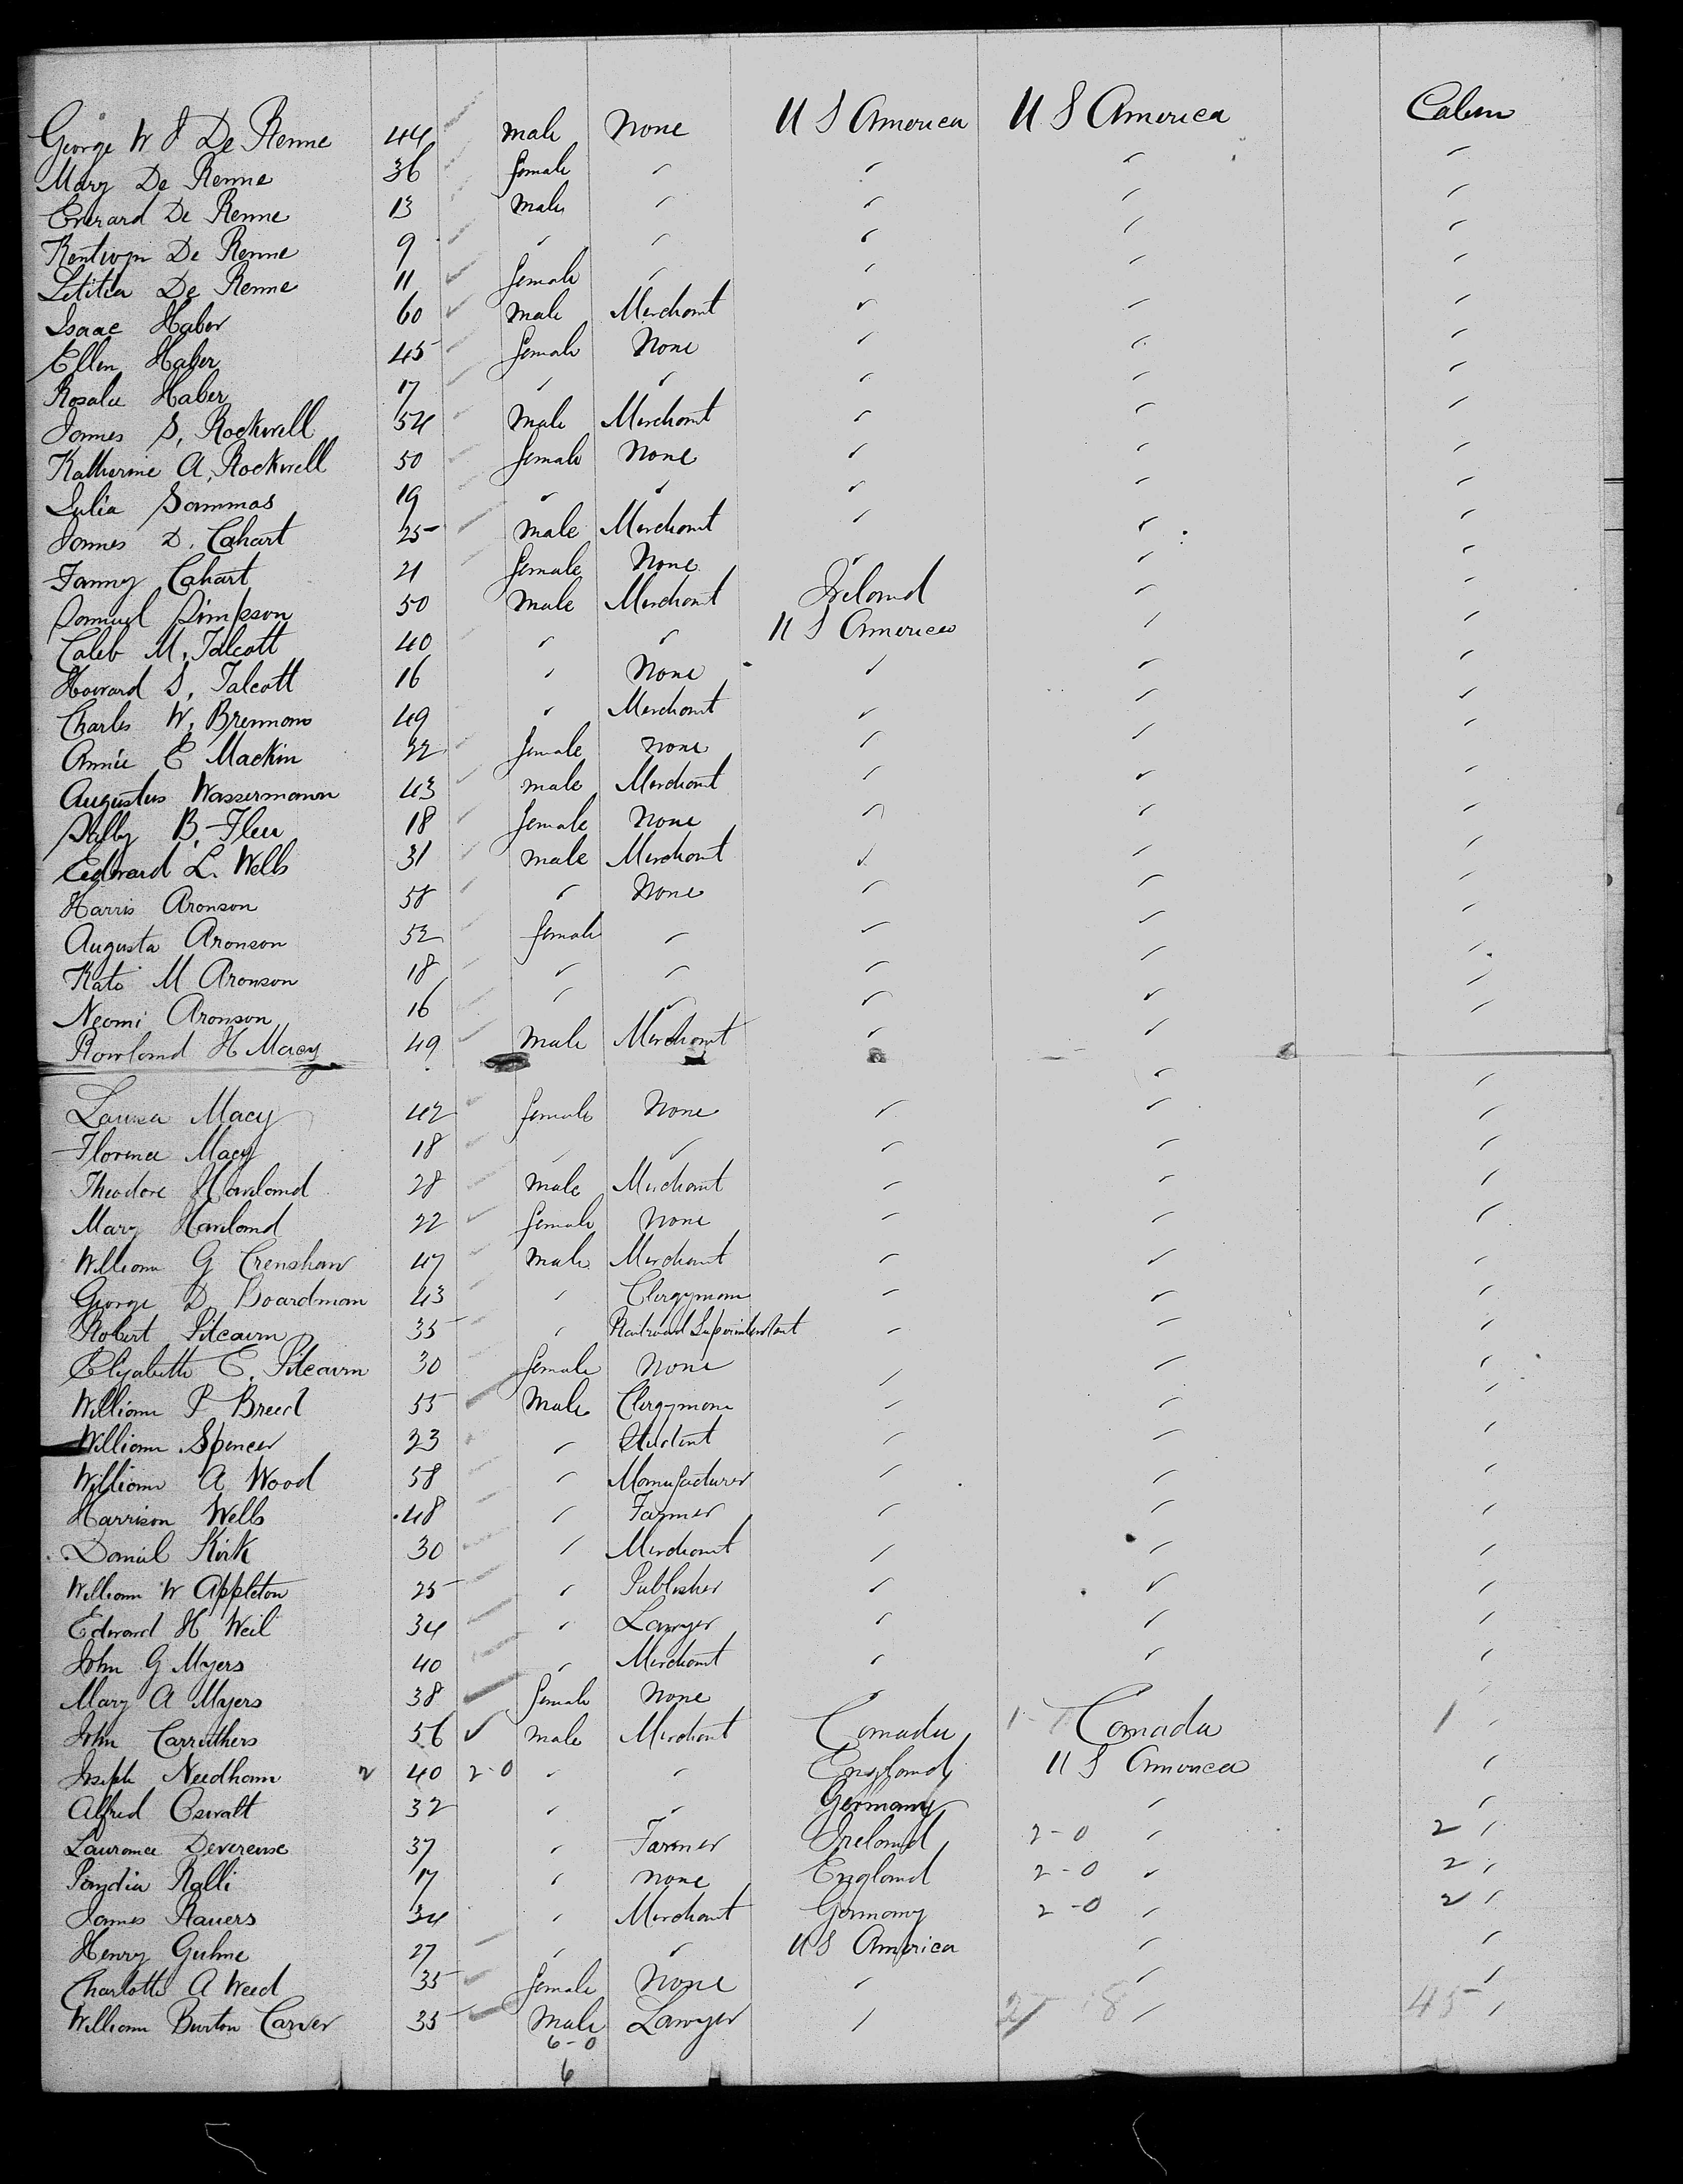 George W J De Renne 44 male None U S America U S America Cabin
Mary De Renne 36 female " " " "
Everard De Renne 13 male " " " "
Kentwyn De Renne 9 " " " " "
Letitia De Renne 11 female " " " "
Isaac Haber 60 male Merchant " " "
Ellen Haber 45 female None " " "
Rosalie Haber 17 " " " " "
James S, Rockwell 54 male Merchant " " "
Katherine A, Rockwell 50 female None " " "
Julia Sammas 19 " " " " "
James D. Cahart 25 male Merchant " " "
Fanny Cahart 21 female None " " "
Samuel Simpson 50 male Merchant Ireland " "
Caleb M, Talcott 40 " " U S America " "
Howard S, Talcott 16 " None " " "
Charles W, Brennan 49 " Merchant " " "
Annie E Mackin 22 female none " " "
Augustus Wassermann 43 male Merchant " " "
Sally B, 18 female None " " "
Edward L. Wells 31 male Merchant " " "
Harris Aronson 58 " None " " "
Augusta Aronson 52 female " " " "
Kate M Aronson 18 " " " " "
Neomi Aronson 16 " " " " "
Rowland H Macy 49 male Merchant " " "
Louisa Macy 42 female None " " "
Florence Macy 18 " " " " "
Theodore Haviland 28 male Merchant " " "
Mary Haviland 22 female None " " "
William G Crenshaw 47 male Merchant " " "
George D Boardman 43 " Clergyman " " "
Robert Pitcairn 35 " Railroad Superintendant " " "
Elizabeth E, Pitcairn 30 female None " " "
William P Breed 55 male Clergyman " " "
William Spencer 23 " Student " " "
William A Wood 58 " Manufacturer " " "
Harrison Wells 48 " Farmer " " "
Daniel Kirk 30 " Merchant " " "
William W Appleton 25 " Publisher " " "
Edward H Weil 34 " Lawyer " " "
John G Myers 40 " Merchant " " "
Mary A Myers 38 female None " " "
John Carruthers 56 male Merchant Canada Canada 1 "
Joseph Needham 2 40 2-0 " " England U S America "
Alfred Oswalt 32 " " Germany " "
Laurance Devereuse 37 " Farmer Ireland 2-0 " 2 "
Pandia Ralli 17 " none England 2-0 " 2 "
James Rauers 34 " Merchant Germany 2-0 " 2 "
Henry Guhne 27 " " U S America " "
Charlotte A Weed 35 female None " " "
William Burton Carver 35 male Lawyer " " 45 "
6-0
6